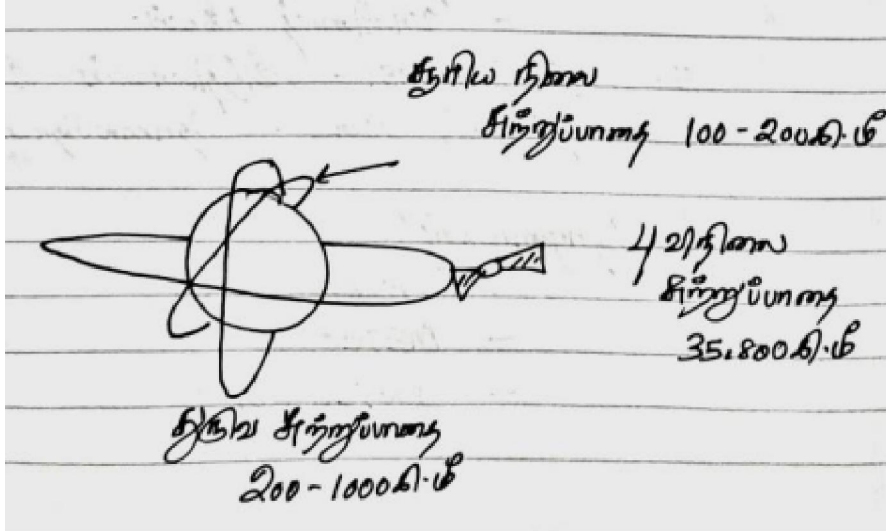 சூரிய நிலை
சுற்றுப்பாதை 100-200கி.மீ
புவிநிலை
சுற்றுப்பாதை
35,800கி.மீ
துருவ சுற்றுப்பாதை
200-1000கி.மீ